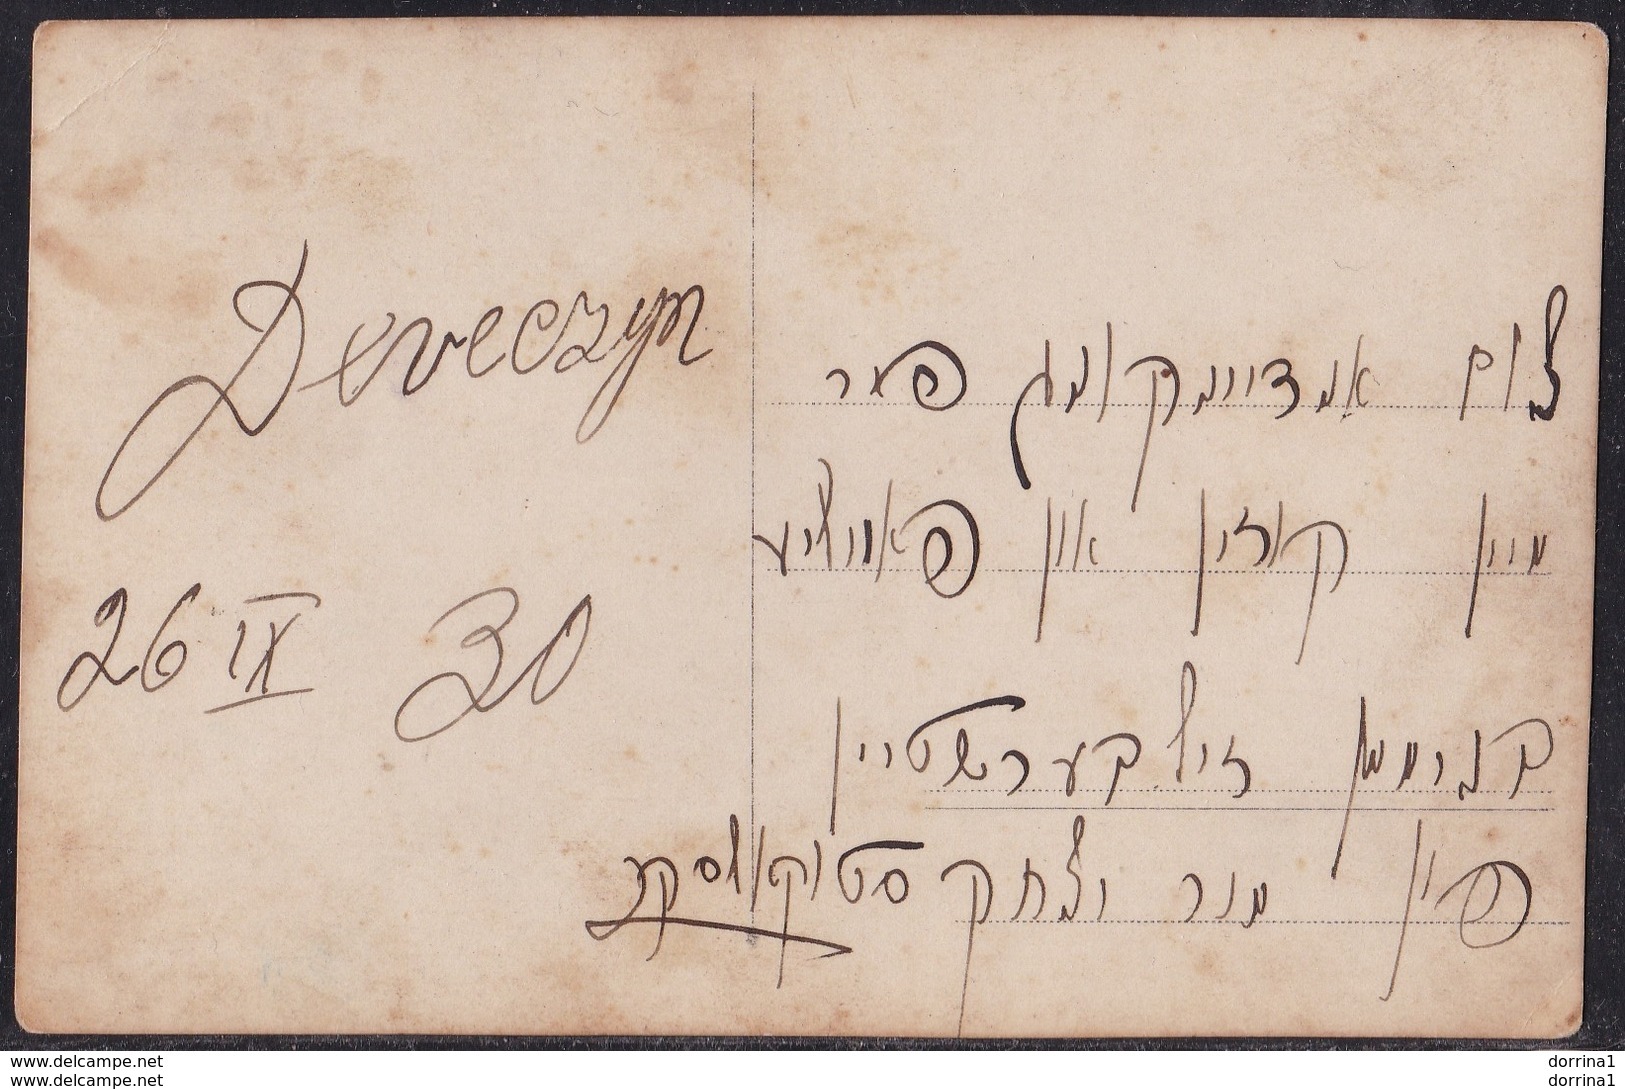 Dereczyn
26 IX 30
צום אנדיינקונג פער
מיין קוזין און פאוולע
בנימען זילבערשטיין
פין מנר יצחק סטוקאלסקי
www.delcampe.net dorrina1
www.delcampe.net dorrina1